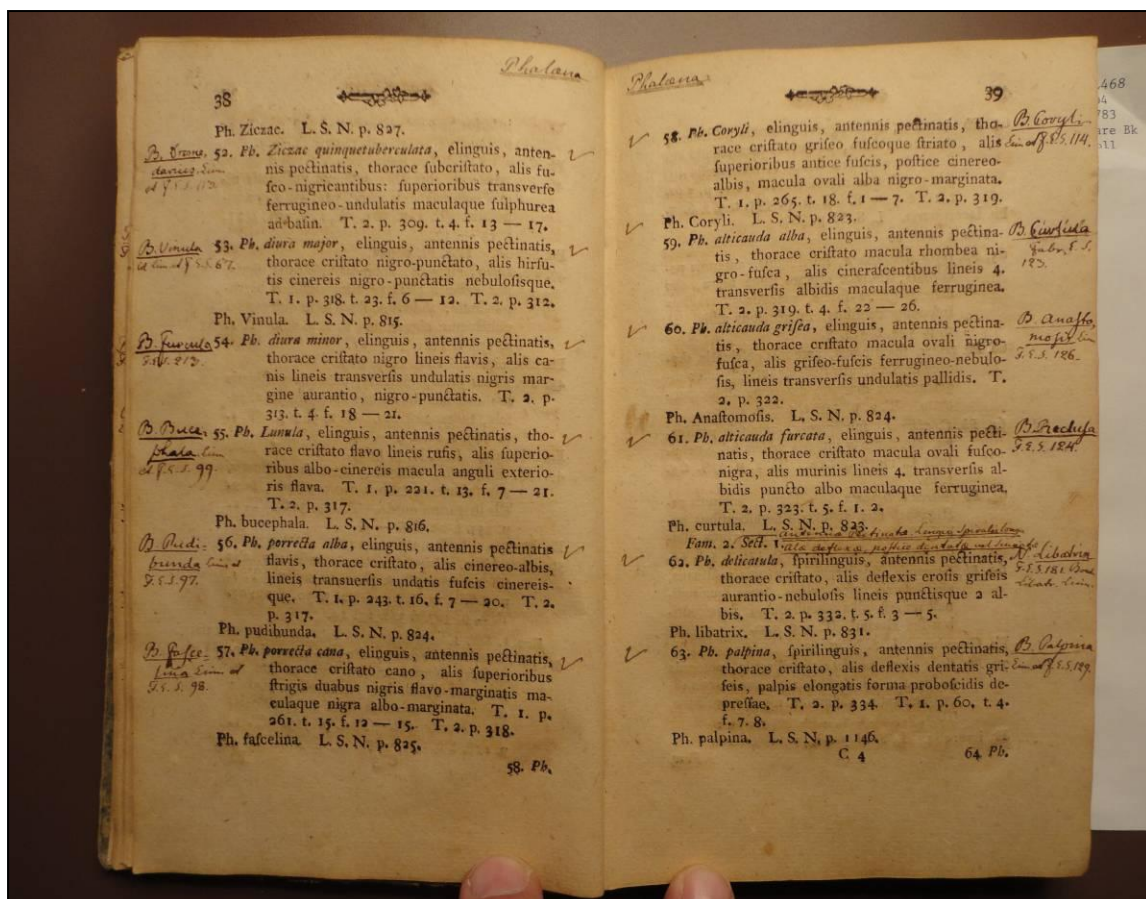 Phalæna
38
Ph. Ziczac. L. S. N. p. 827.
52. Ph. Ziczac quinquetuberculata, elinguis, anten-
nis pectinatis, thorace subcristato, alis fu-
sco-nigricantibus: superioribus transverse
ferrugineo-undulatis maculaque sulphurea
ad basin. T. 2. p. 309. t. 4. f. 13 — 17.
B. Vinula
53. Ph. diura major, elinguis, antennis pectinatis,
thorace cristato nigro-punctato, alis hirsu-
tis cinereis nigro-punctatis nebulosisque.
T. 1. p. 318. t. 23. f. 6 — 12. T. 2. p. 312.
Ph. Vinula. L. S. N. p. 815.
B. Furcula
F.E.S. 213.
54. Ph. diura minor, elinguis, antennis pectinatis,
thorace cristato nigro lineis flavis, alis ca-
nis lineis transversis undulatis nigris mar-
gine aurantio, nigro-punctatis. T. 2. p.
313. t. 4. f. 18 — 21.
B. Buce-
phala Linn
et F.E.S. 99
55. Ph. Lunula, elinguis, antennis pectinatis, tho-
race cristato flavo lineis rufis, alis superio-
ribus albo-cinereis macula anguli exterio-
ris flava. T. 1. p. 221. t. 13. f. 7 — 21.
T. 2. p. 317.
Ph. bucephala. L. S. N. p. 816.
B. Pudi-
bunda Linn et
F.E.S. 97.
56. Ph. porrecta alba, elinguis, antennis pectinatis
flavis, thorace cristato, alis cinereo-albis,
lineis transuersis undatis fuscis cinereis-
que. T. 1. p. 243. t. 16. f. 7 — 20. T. 2.
p. 317.
Ph. pudibunda. L. S. N. p. 824.
B. Fasce-
lina Linn et
F.E.S. 98.
57. Ph. porrecta cana, elinguis, antennis pectinatis,
thorace cristato cano, alis superioribus
strigis duabus nigris flavo-marginatis ma-
culaque nigra albo-marginata. T. 1. p.
261. t. 15. f. 12 — 15. T. 2. p. 318.
Ph. fascelina. L. S. N. p. 825.
58. Ph.
Phalæna
39
58. Ph. Coryli, elinguis, antennis pectinatis, tho-
race cristato griseo fuscoque striato, alis
superioribus antice fuscis, postice cinereo-
albis, macula ovali alba nigro-marginata.
T. 1. p. 265. t. 18. f. 1 — 7. T. 2. p. 319.
B. Coryli
Linn et F.E.S. 114.
Ph. Coryli. L. S. N. p. 823.
59. Ph. alticauda alba, elinguis, antennis pectina-
tis, thorace cristato macula rhombea ni-
gro-fusca, alis cinerascentibus lineis 4.
transversis albidis maculaque ferruginea.
T. 2. p. 319. t. 4. f. 22 — 26.
B. Curtula
Fabr. E. S.
123.
60. Ph. alticauda grisea, elinguis, antennis pectina-
tis, thorace cristato macula ovali nigro-
fusca, alis griseo-fuscis ferrugineo-nebulo-
sis, lineis transversis undulatis pallidis. T.
2. p. 322.
B. Anasto-
mosis Lin
F.E.S. 126.
Ph. Anastomosis. L. S. N. p. 824.
61. Ph. alticauda furcata, elinguis, antennis pecti-
natis, thorace cristato macula ovali fusco-
nigra, alis murinis lineis 4. transversis al-
bidis puncto albo maculaque ferruginea.
T. 2. p. 323. t. 5. f. 1. 2.
B. Reclusa
F.E.S. 124.
Ph. curtula. L. S. N. p. 823.
Fam. 2. Sect. 1.
62. Ph. delicatula, spirilinguis, antennis pectinatis,
thorace cristato, alis deflexis erosis griseis
aurantio-nebulosis lineis punctisque 2 al-
bis. T. 2. p. 332. t. 5. f. 3 — 5.
Libatrix
Ph. libatrix. L. S. N. p. 831.
63. Ph. palpina, spirilinguis, antennis pectinatis,
thorace cristato, alis deflexis dentatis gri-
seis, palpis elongatis forma proboscidis de-
pressae. T. 2. p. 334. T. 1. p. 60. t. 4.
f. 7. 8.
B. Palpina
Linn et F.E.S. 129.
Ph. palpina. L. S. N. p. 1146.
C 4
64 Ph.
468
783
are Bk